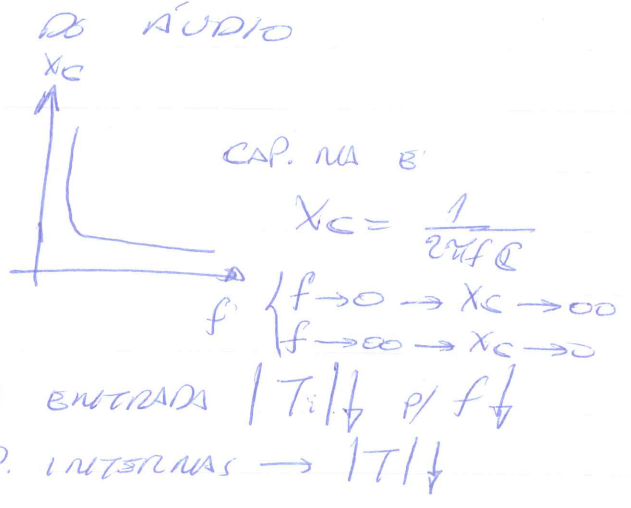 DO ÁUDIO
XC
CAP. NA E
XC = 1 / 2πfC
f
f → 0 → XC → ∞
f → ∞ → XC → 0
ENTRADA |Ti|↓ p/ f↓
P. INTERNAS → |T|↓